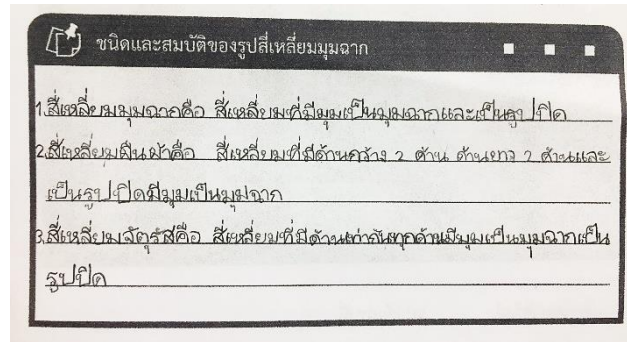 ชนิดและสมบัติของรูปสี่เหลี่ยมมุมฉาก
1.สี่เหลี่ยมมุมฉากคือ สี่เหลี่ยมที่มีมุมเป็นมุมฉากและเป็นรูปปิด
2.สี่เหลี่ยมผืนผ้าคือ สี่เหลี่ยมที่มีด้านกว้าง 2 ด้าน ด้านยาว 2 ด้านและ
เป็นรูปปิดมีมุมเป็นมุมฉาก
3.สี่เหลี่ยมจัตุรัสคือ สี่เหลี่ยมที่มีด้านเท่ากันทุกด้านมีมุมเป็นมุมฉากเป็น
รูปปิด